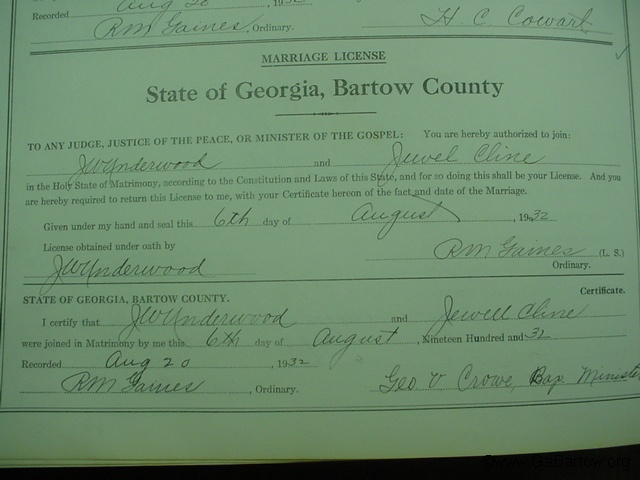 Recorded Aug 20, 1932
RM Gaines, Ordinary. H. C. Cowart
MARRIAGE LICENSE
State of Georgia, Bartow County
TO ANY JUDGE, JUSTICE OF THE PEACE, OR MINISTER OF THE GOSPEL: You are hereby authorized to join:
JW Underwood and Jewel Cline
in the Holy State of Matrimony, according to the Constitution and Laws of this State, and for so doing this shall be your License. And you
are hereby required to return this License to me, with your Certificate hereon of the fact and date of the Marriage.
Given under my hand and seal this 6th day of August, 1932
License obtained under oath by RM Gaines (L. S.)
JW Underwood Ordinary.
STATE OF GEORGIA, BARTOW COUNTY. Certificate.
I certify that JW Underwood and Jewell Cline
were joined in Matrimony by me this 6th day of August, Nineteen Hundred and 32
Recorded Aug 20, 1932
RM Gaines, Ordinary. Geo V Crowe, Bap Ministe
©www.GaBartow.org